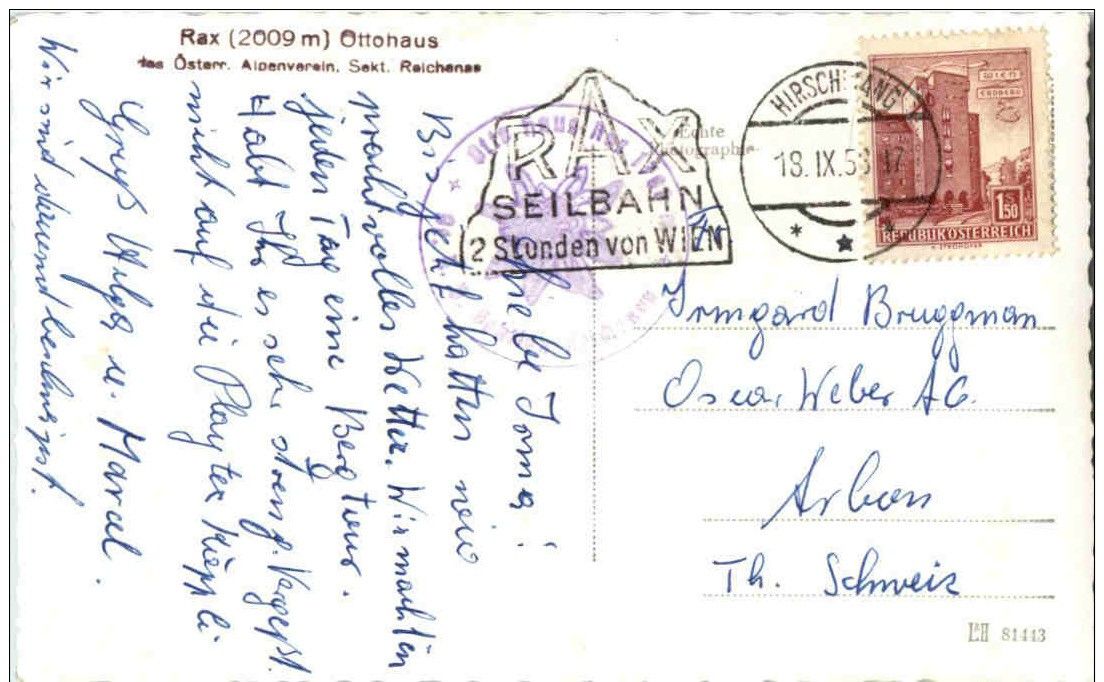 Rax (2009 m) Ottohaus
des Österr. Alpenverein, Sekt. Reichenau
Echte
Photographie
RAX
SEILBAHN
2 Stunden von WIEN
HIRSCHWANG
18.IX.58 17
WIEN
ERDBERG
1.50
REPUBLIK ÖSTERREICH
Liebe Irma!
Bis jetzt hatten wir
prachtvolles Wetter. Wir machten
jeden Tag eine Berg tour.
Habt Ihr es sehr streng. Vergesst
nicht auf die Playtex
Gruß Helga u. Marcel.
Wir sind
Irmgard Bruggman
Oscar Weber AG.
Arbon
Th. Schweiz
81443